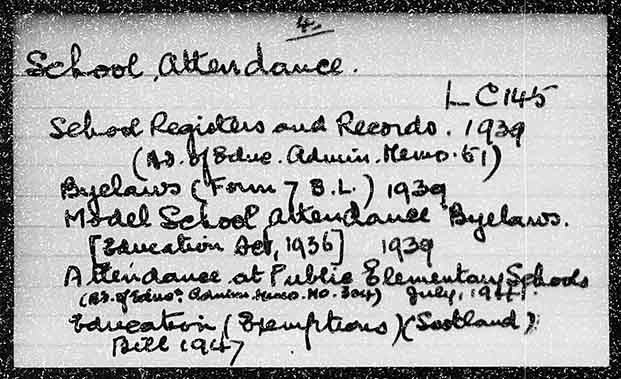 4.
School Attendance.
LC145
School Registers and Records. 1939
(Bd. of Educ. Admin. Memo. 51)
Byelaws (Form 7 B.L.) 1939
Model School Attendance Byelaws.
[Education Act, 1936] 1939
Attendance at Public Elementary Schools
(Bd. of Educn. Admin. Memo. No. 304) July, 1941.
Education (Exemptions) (Scotland)
Bill 1947